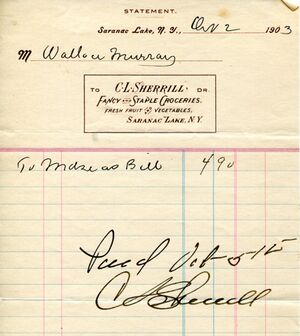 STATEMENT.
Saranac Lake, N. Y., Oct 2 1903
M Wallace Murray
TO C. L. SHERRILL DR.
FANCY AND STAPLE GROCERIES.
FRESH FRUIT & VEGETABLES,
SARANAC LAKE, N.Y.
To Mdse as Bill 4 90
Paid Oct 5
C L Sherrill